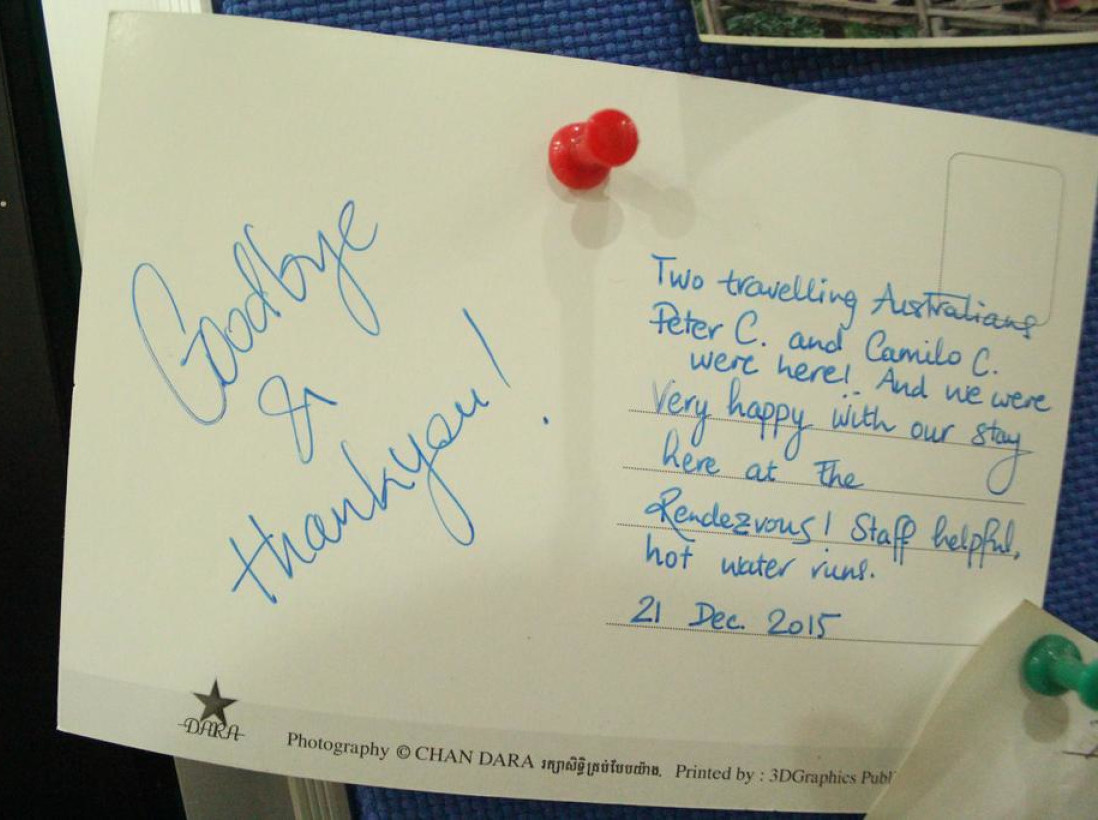 Goodbye
&
thankyou!
Two travelling Australians
Peter C. and Camilo C.
were here! And we were
very happy with our stay
here at the
Rendezvous! Staff helpful,
hot water runs.
21 Dec. 2015
DARA
Photography © CHAN DARA រក្សាសិទ្ធិគ្រប់បែបយ៉ាង. Printed by : 3DGraphics Publ